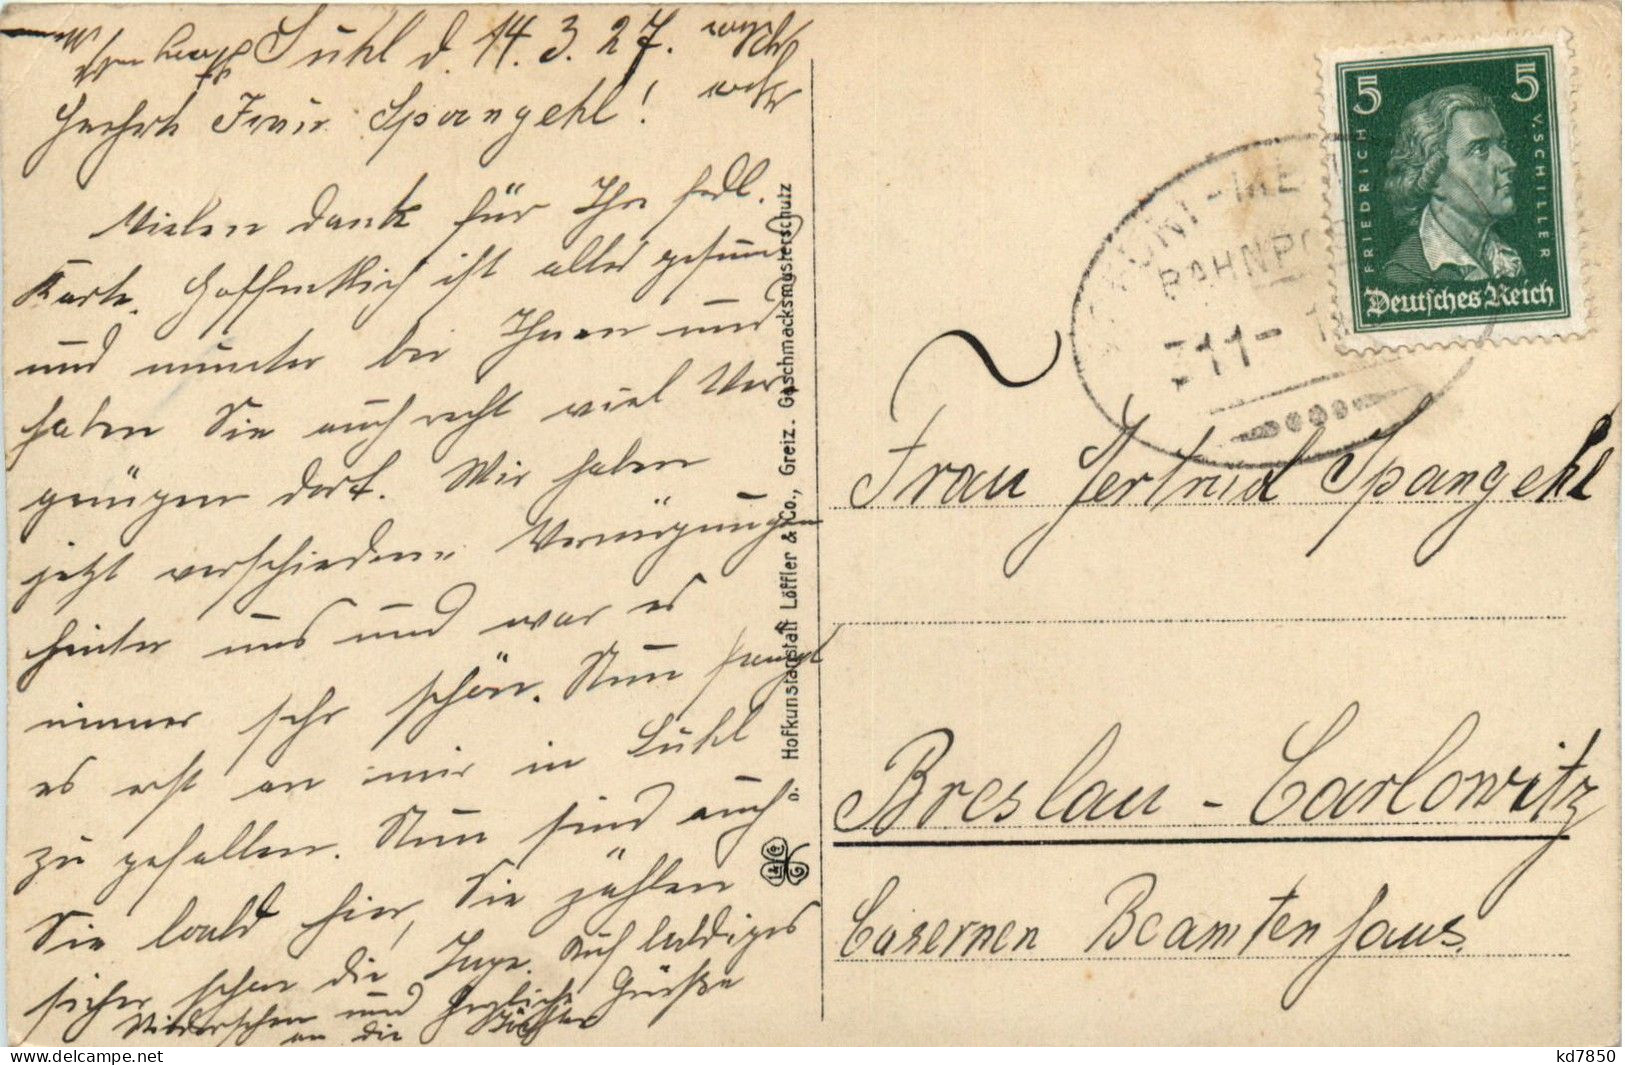 Suhl d. 14.3.27.
Geehrte Frau Spangehl!
Vielen Dank für Ihre frdl.
Karte. Hoffentlich ist alles gesund
und munter bei Ihnen und
haben Sie auch recht viel Ver-
gnügen dort. Wir haben
jetzt verschiedene Vernügungen
hinter uns und war es
immer sehr schön. Nun fängt
es erst an mir in Suhl
zu gefallen. Nun sind auch
Sie bald hier, Sie zählen
sicher schon die Tage. Auf baldiges
Wiedersehen und herzliche Grüße
an die
Hofkunstanstalt Löffler & Co., Greiz. Geschmacksmusterschutz
5 5
FRIEDRICH V. SCHILLER
Deutsches Reich
BAHNPO
Frau Gertrud Spangehl
Breslau - Carlowitz
Casernen Beamtenhaus.
kd7850